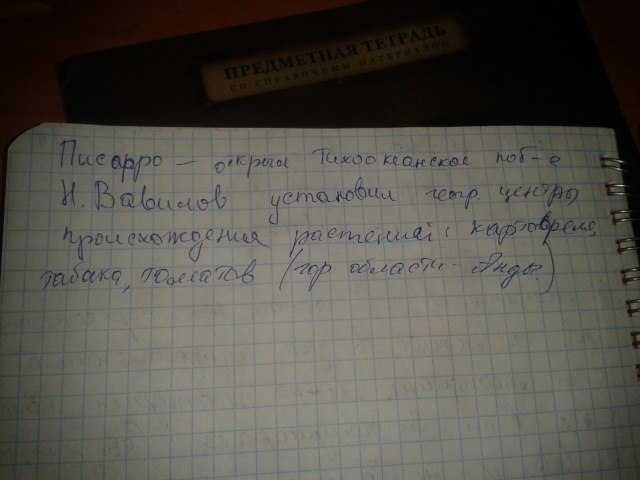 ПРЕДМЕТНАЯ ТЕТРАДЬ
СО СПРАВОЧНЫМ МАТЕРИАЛОМ
Писарро — открыл Тихоокеанское поб-е
Н. Вавилов установил геогр. центры
происхождения растений: картофеля,
табака, томатов (гор области - Анды)